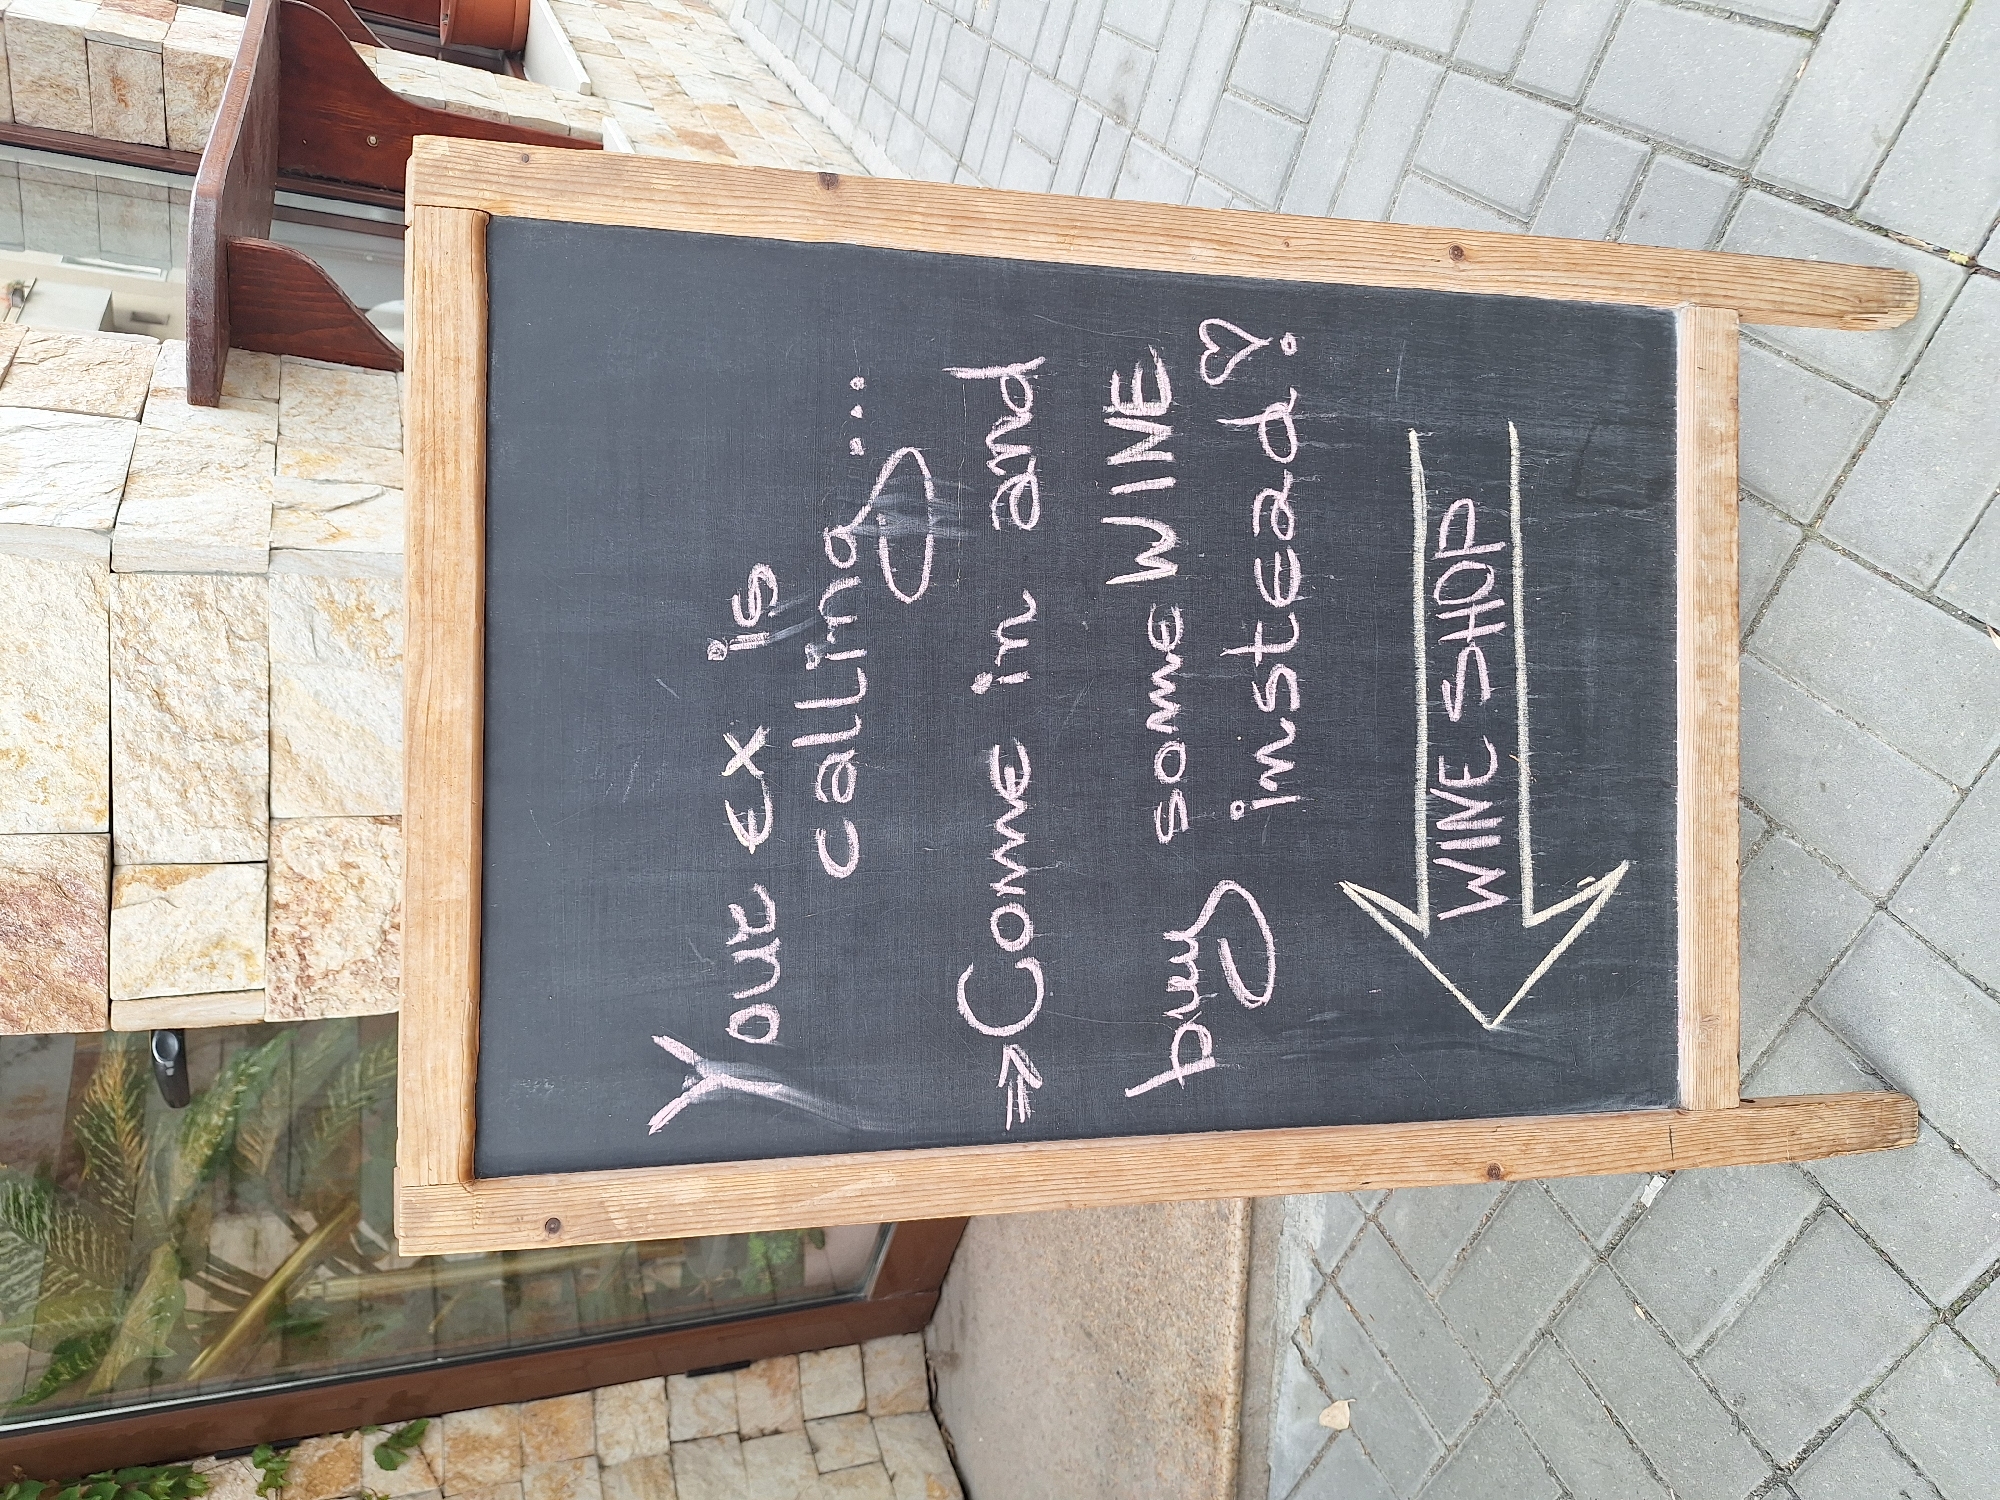 Your ex is
calling...
⇒ Come in and
buy some WINE
instead! ♡
WINE SHOP